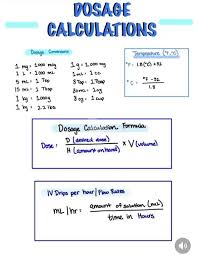 DOSAGE
CALCULATIONS
Dosage Conversions
1 mg = 1000 mcg
1 L = 1000 mL
5 mL = 1 Tsp
15 mL = 1 Tbsp
1 kg = 1000g
1 kg = 2.2 lbs
1 g = 1,000 mg
1 mL = 1 cc
3 Tsp = 1 Tbsp
30 mL = 1 oz
8 oz = 1 cup
Temperature (°F, °C)
°F = 1.8(°C) + 32
°C = °F - 32
1.8
Dosage Calculation Formula
Dose = D (desired dose) × V (volume)
H (amount on hand)
IV Drips per hour / Flow Rates
mL/hr = amount of solution (mL)
time in Hours